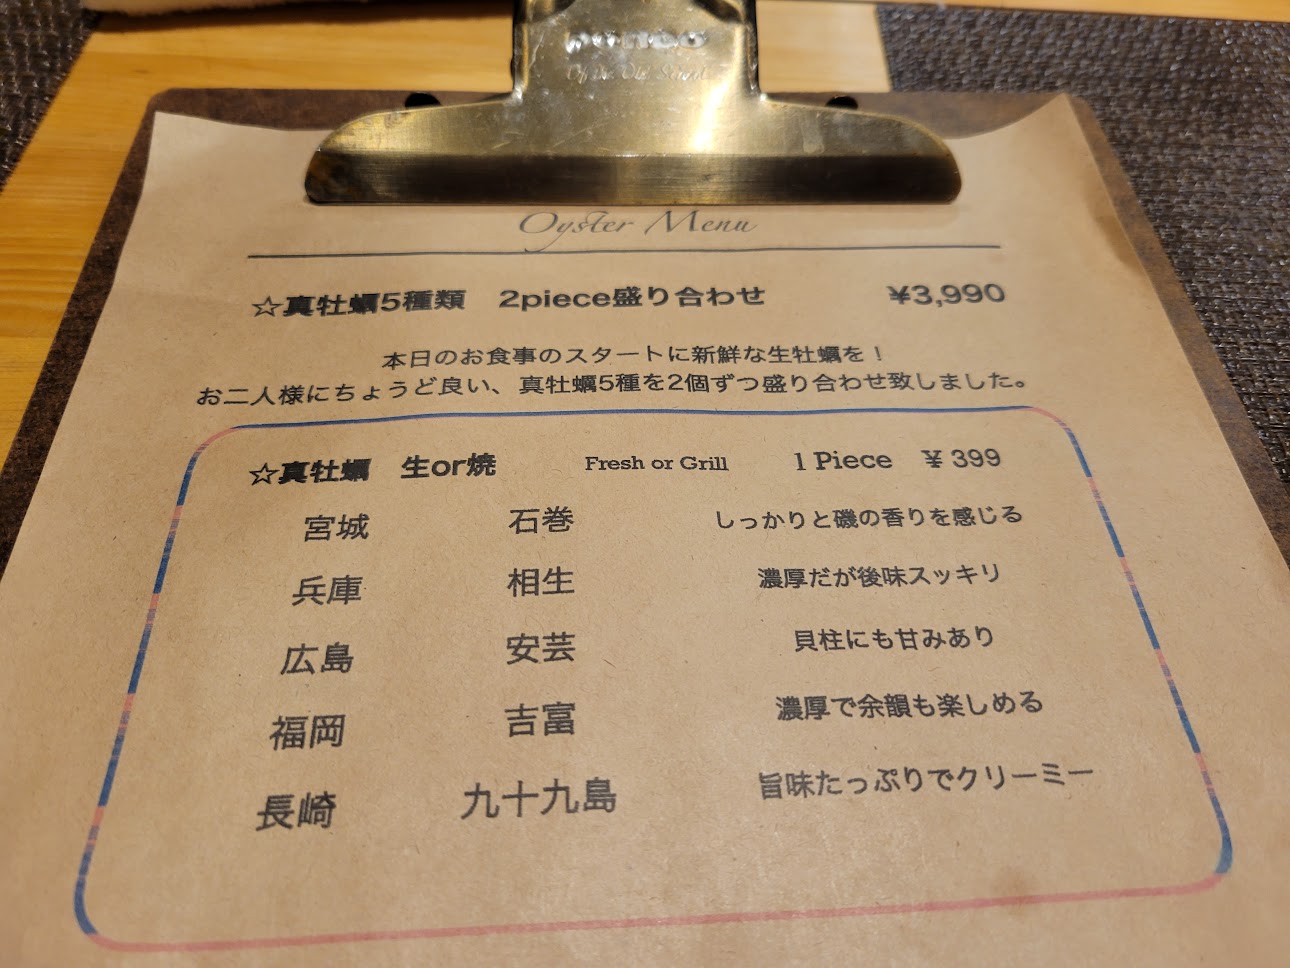 penco
Oyster Menu
☆真牡蠣5種類 2piece盛り合わせ ¥3,990
本日のお食事のスタートに新鮮な生牡蠣を！
お二人様にちょうど良い、真牡蠣5種を2個ずつ盛り合わせ致しました。
☆真牡蠣 生or焼 Fresh or Grill 1 Piece ¥ 399
宮城 石巻 しっかりと磯の香りを感じる
兵庫 相生 濃厚だが後味スッキリ
広島 安芸 貝柱にも甘みあり
福岡 吉富 濃厚で余韻も楽しめる
長崎 九十九島 旨味たっぷりでクリーミー